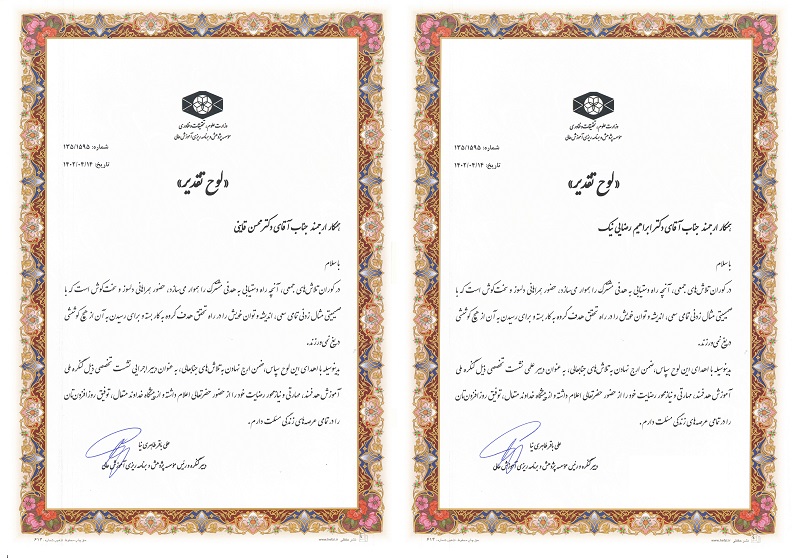 وزارت علوم، تحقیقات و فناوری
موسسه پژوهش و برنامه ریزی آموزش عالی
شماره: ۱۳۵/۱۵۹۵
تاریخ: ۱۴۰۲/۰۴/۱۴
«لوح تقدیر»
همکار ارجمند جناب آقای دکتر محسن قاینی
با سلام
در کوران تلاش‌های جمعی، آنچه راه دستیابی به هدفی مشترک را هموار می‌سازد، حضور همراهانی دلسوز و سخت‌کوش است که با
صمیمیتی مثال زدنی تمامی سعی، اندیشه و توان خویش را در راه تحقق هدف گروه به کار بسته و برای رسیدن به آن از هیچ کوششی
دریغ نمی‌ورزند.
بدینوسیله با اهدای این لوح سپاس، ضمن ارج نهادن به تلاش‌های جنابعالی، به عنوان دبیر اجرایی نشست تخصصی پنل کنگره ملی
آموزش هدفمند، مهارتی و نیازمحور رضایت خود را از حضور حضرتعالی اعلام داشته و از پیشگاه خداوند متعال، توفیق روزافزون‌تان
را در تمامی عرصه‌های زندگی مسئلت دارم.
علی باقر طاهری نیا
دبیر کنگره و رئیس موسسه پژوهش و برنامه ریزی آموزش عالی
وزارت علوم، تحقیقات و فناوری
موسسه پژوهش و برنامه ریزی آموزش عالی
شماره: ۱۳۵/۱۵۹۵
تاریخ: ۱۴۰۲/۰۴/۱۴
«لوح تقدیر»
همکار ارجمند جناب آقای دکتر ابراهیم رضایی نیک
با سلام
در کوران تلاش‌های جمعی، آنچه راه دستیابی به هدفی مشترک را هموار می‌سازد، حضور همراهانی دلسوز و سخت‌کوش است که با
صمیمیتی مثال زدنی تمامی سعی، اندیشه و توان خویش را در راه تحقق هدف گروه به کار بسته و برای رسیدن به آن از هیچ کوششی
دریغ نمی‌ورزند.
بدینوسیله با اهدای این لوح سپاس، ضمن ارج نهادن به تلاش‌های جنابعالی، به عنوان دبیر علمی نشست تخصصی پنل کنگره ملی
آموزش هدفمند، مهارتی و نیازمحور رضایت خود را از حضور حضرتعالی اعلام داشته و از پیشگاه خداوند متعال، توفیق روزافزون‌تان
را در تمامی عرصه‌های زندگی مسئلت دارم.
علی باقر طاهری نیا
دبیر کنگره و رئیس موسسه پژوهش و برنامه ریزی آموزش عالی